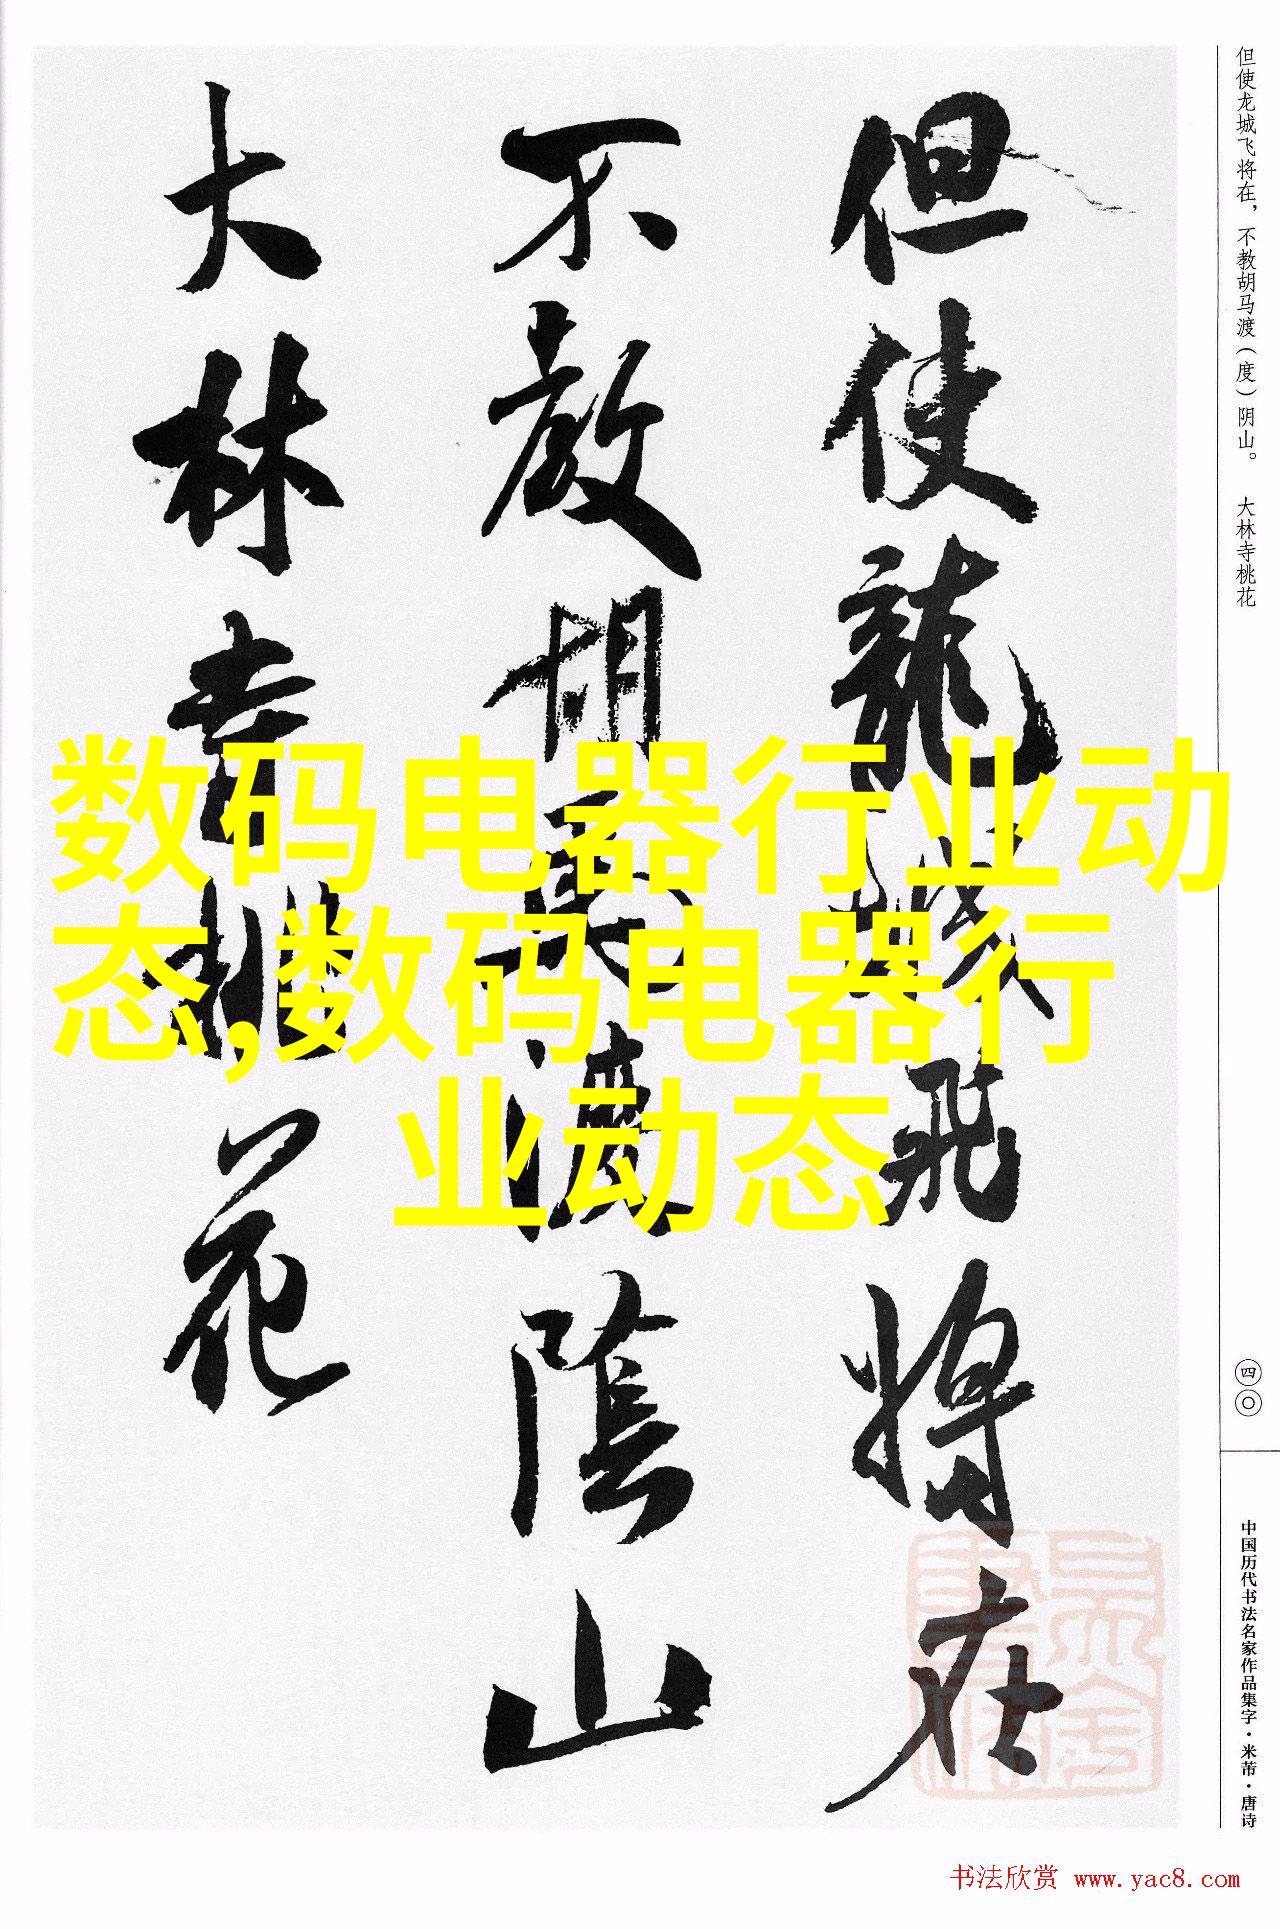 但使龙城飞将在，不教胡马渡（度）阴山。 大林寺桃花
但使龍城飛将在
不教胡馬渡陰山
大林寺桃花
数码电器行业动
态,数码电器行
业动态
四〇
中国历代书法名家作品集字·米芾·唐诗
书法欣赏 www.yac8.com